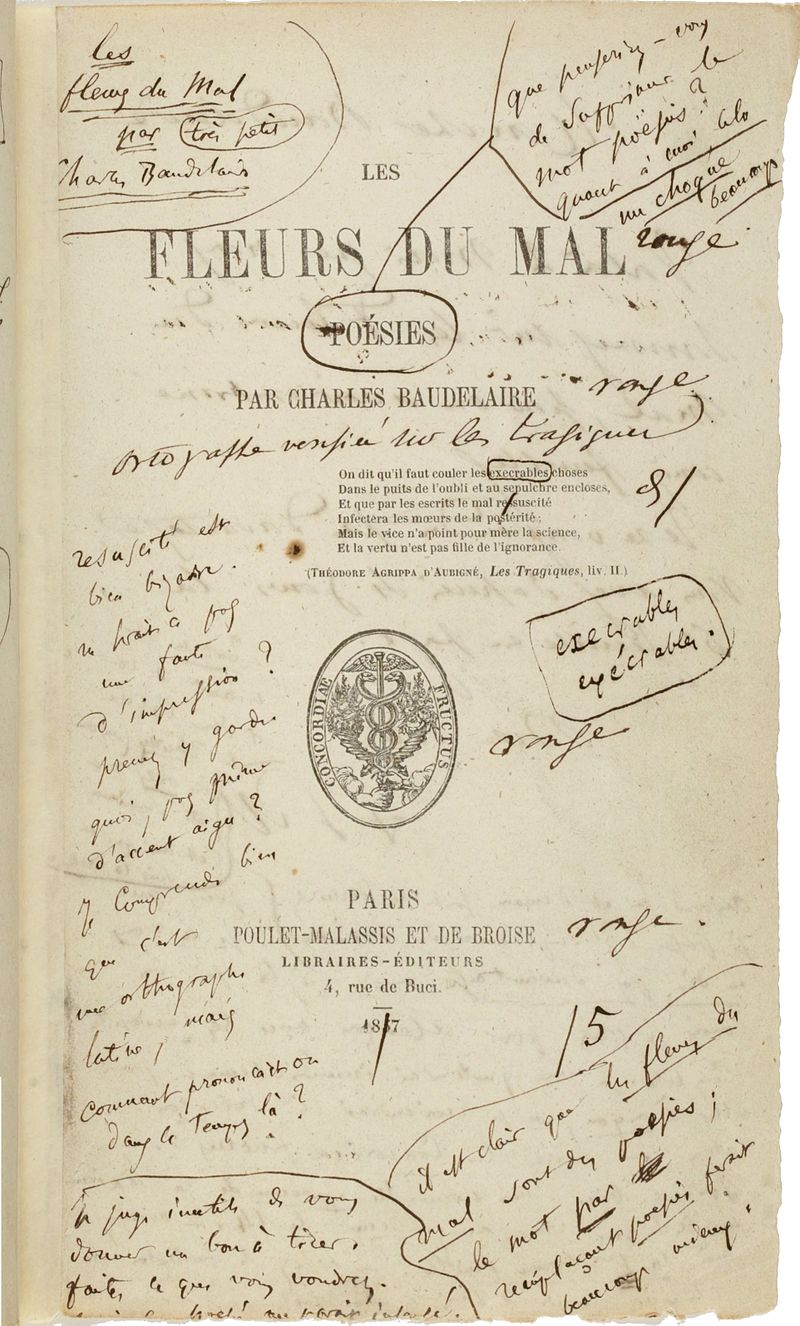 les
fleurs du Mal
par très petit
Charles Baudelaire
que penseriez-vous
de supprimer le
mot poësies?
quant à moi, cela
me choque
beaucoup
LES
FLEURS DU MAL
rouge
POÉSIES
PAR CHARLES BAUDELAIRE
rouge
ortografe verifiée sur les tragiques
On dit qu'il faut couler les execrables choses
Dans le puits de l'oubli et au sepulchre encloses,
Et que par les escrits le mal ressuscité
Infectera les mœurs de la postérité;
Mais le vice n'a point pour mère la science,
Et la vertu n'est pas fille de l'ignorance.
(THÉODORE AGRIPPA D'AUBIGNÉ, Les Tragiques, liv. II.)
resuscité est
bien bizarre.
ne serait-ce pas
une faute
d'impression?
prenez y garde
quoi, pas même
d'accent aigu?
Je comprends bien
que c'est
une orthographe
latine, mais
comment prononçait-on
dans ce temps là?
execrables
exécrables.
CONCORDIAE FRUCTUS
rouge
PARIS
POULET-MALASSIS ET DE BROISE
rouge.
LIBRAIRES-ÉDITEURS
4, rue de Buci.
1857
/5
il est clair que les fleurs du
mal sont des poësies;
le mot par
remplaçant poësies serait
beaucoup mieux.
Je juge inutile de vous
donner un bon à tirer.
faites ce que vous voudrez.